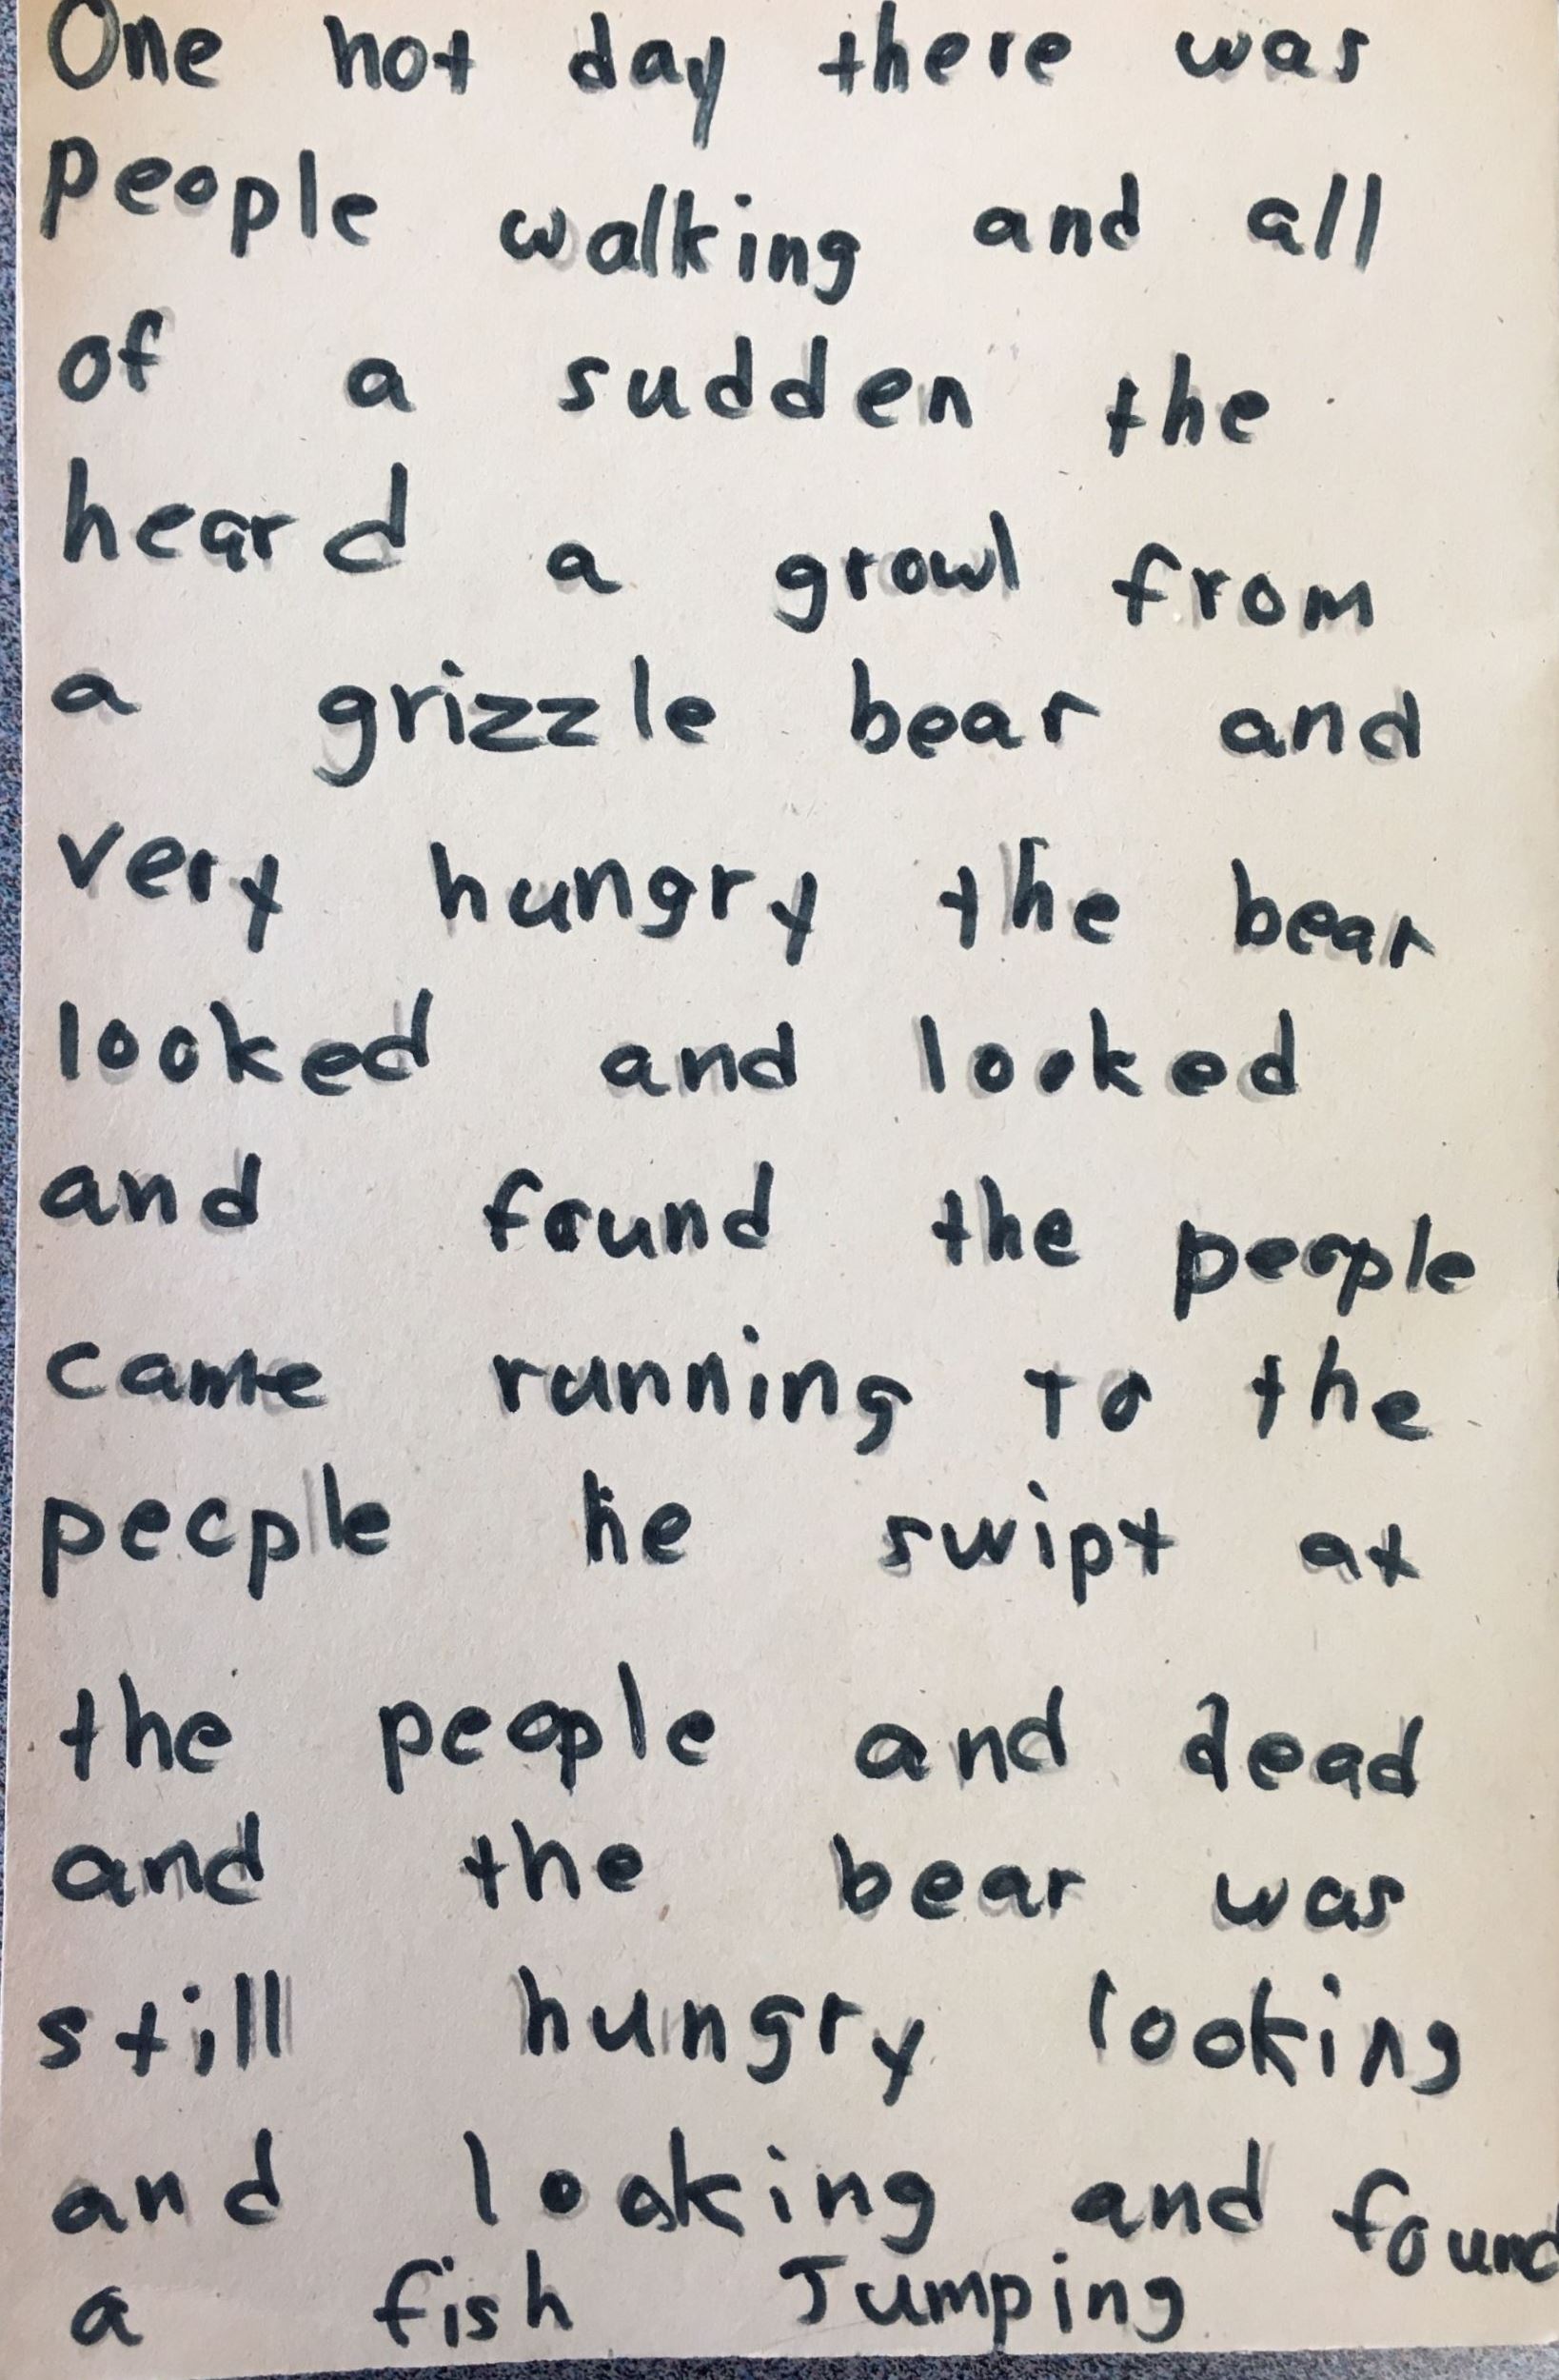 One hot day there was
people walking and all
of a sudden the
heard a growl from
a grizzle bear and
very hungry the bear
looked and looked
and found the people
came running to the
people he swipt at
the people and dead
and the bear was
still hungry looking
and looking and found
a fish Jumping